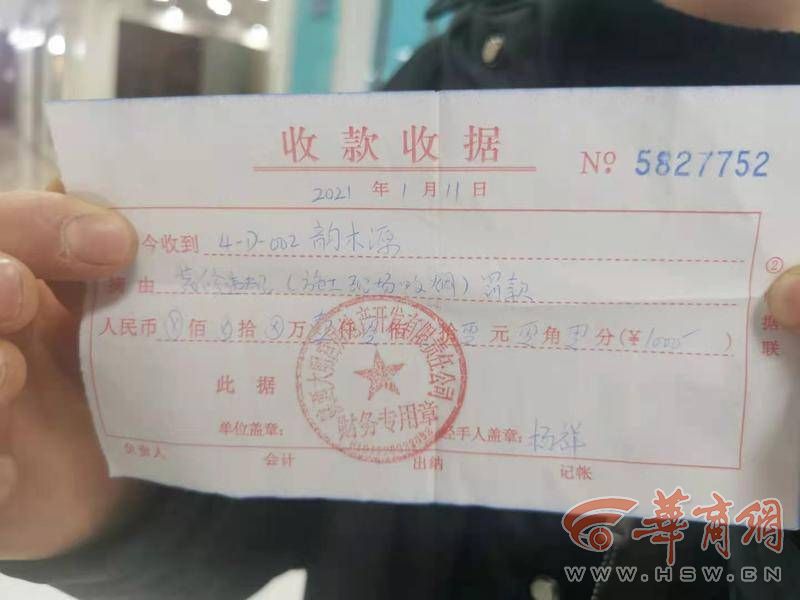 收款收据
№ 5827752
2021 年 1 月 11 日
今收到 4-D-002 韵木源
由 装修违规(施工现场吸烟)罚款
人民币 佰 拾 万 壹 仟 零 佰 拾 零 元 零 角 零 分(¥1000
② 据联
此据
财务专用章
单位盖章: 经手人盖章: 杨祥
负责人 会计 出纳 记帐
華商網
WWW.HSW.CN